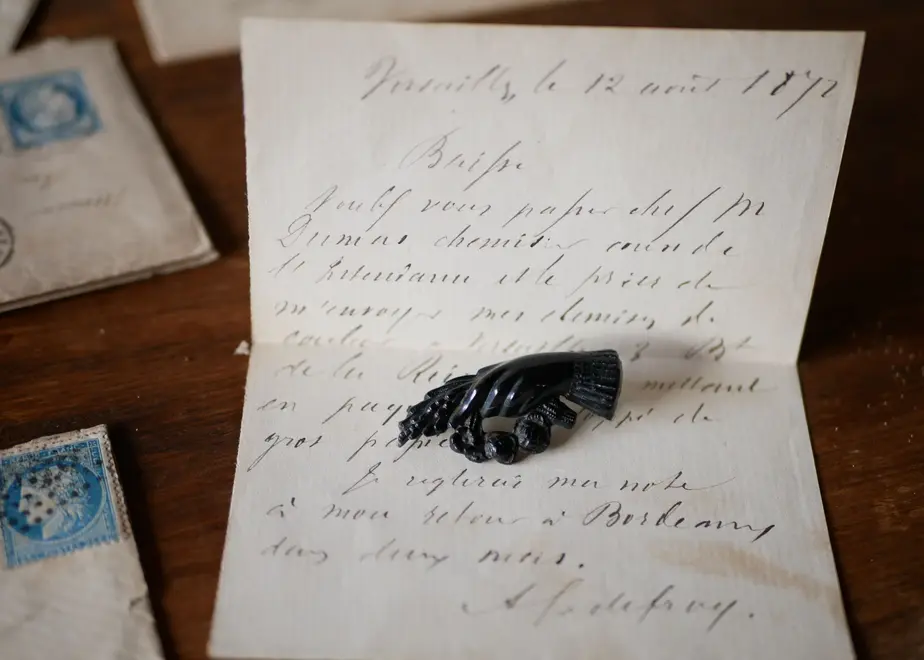 Versailles, le 12 août 1872
Voulez vous passer chez M
Dumas chemisier cours de
l'Intendance et le prier de
m'envoyer mes chemises de
couleur à Versailles 3 Bd
de la Rei mettant
en paq de
gros papier
Je reglerai ma note
à mon retour à Bordeaux
dans deux mois.
A Godefroy.